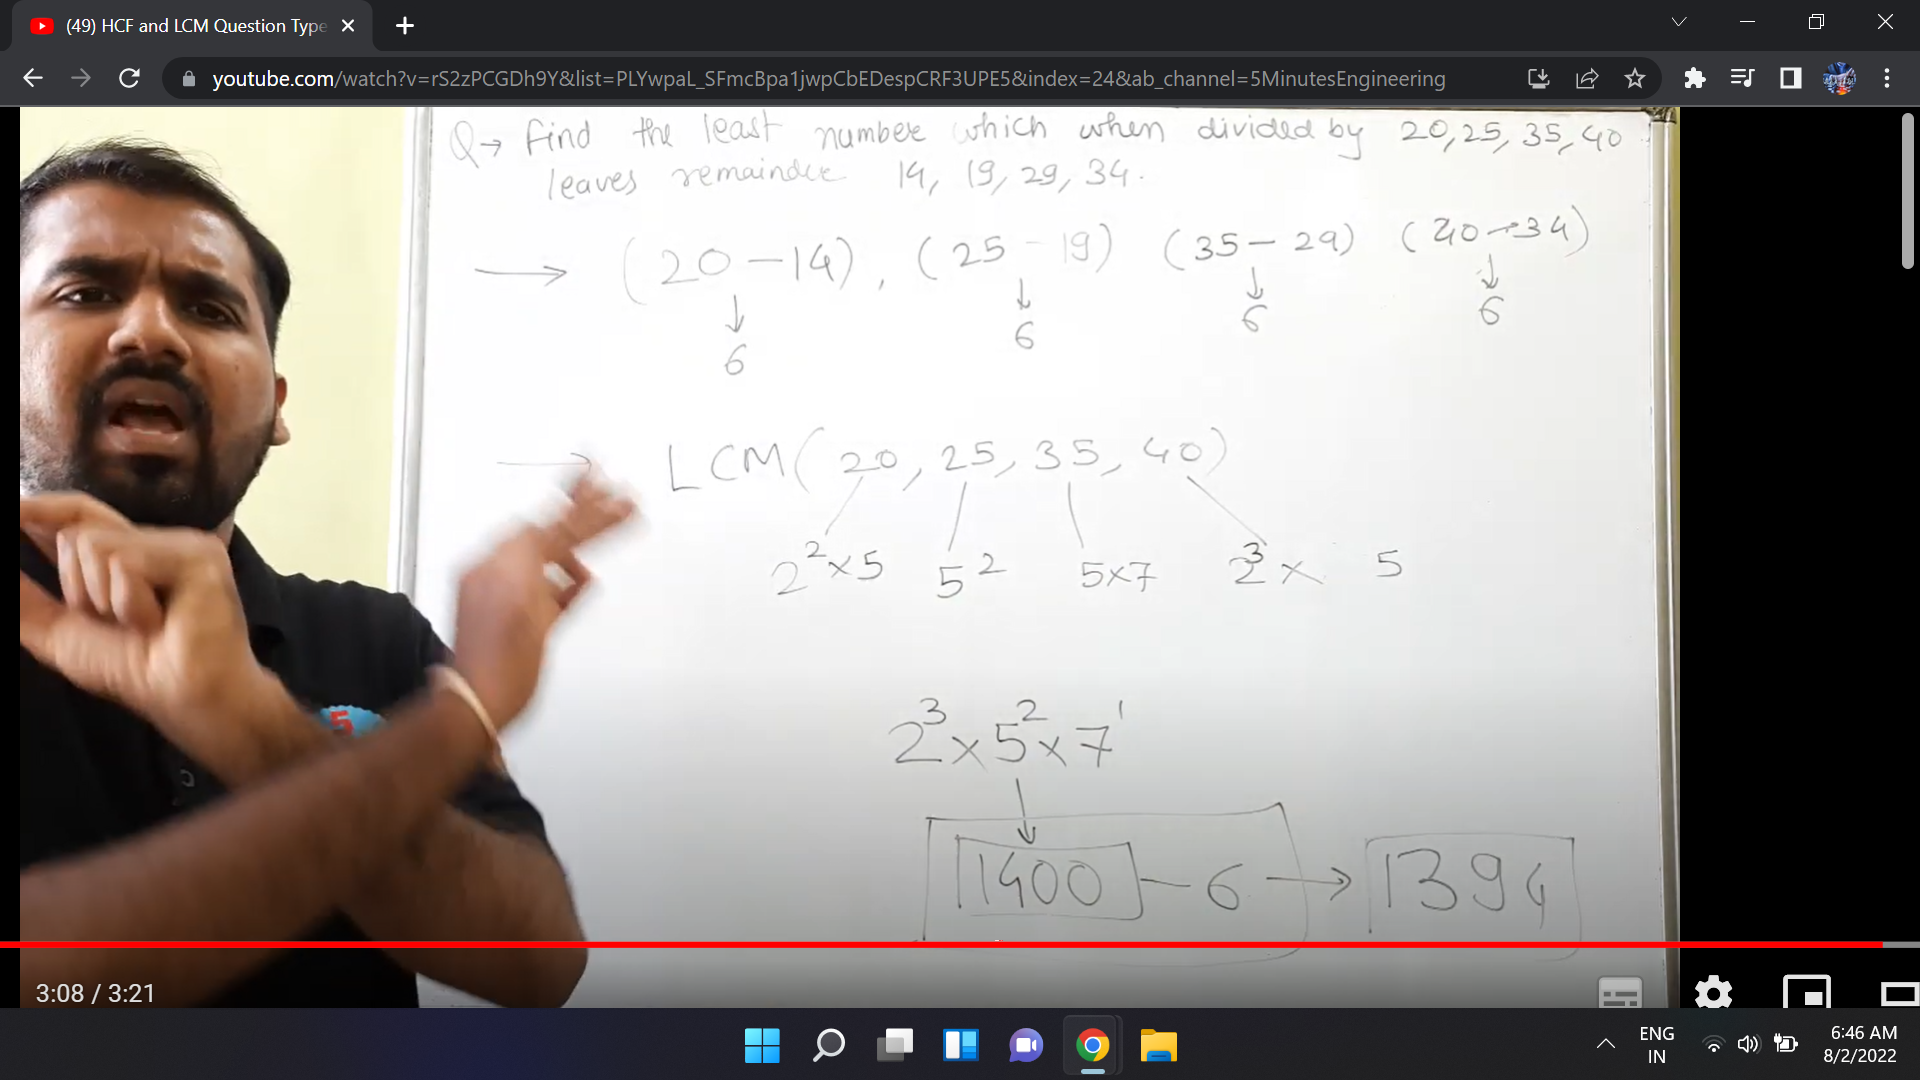 (49) HCF and LCM Question Type
youtube.com/watch?v=rS2zPCGDh9Y&list=PLYwpaL_SFmcBpa1jwpCbEDespCRF3UPE5&index=24&ab_channel=5MinutesEngineering
Q→ Find the least number which when divided by 20, 25, 35, 40
leaves remainder 14, 19, 29, 34.
→ (20 – 14), (25 – 19) (35 – 29) (40 – 34)
↓ ↓ ↓ ↓
6 6 6 6
→ LCM (20, 25, 35, 40)
2² × 5 5² 5×7 2³ × 5
2³ × 5² × 7¹
↓
1400 – 6 → 1394
5
3:08 / 3:21
ENG
IN
6:46 AM
8/2/2022